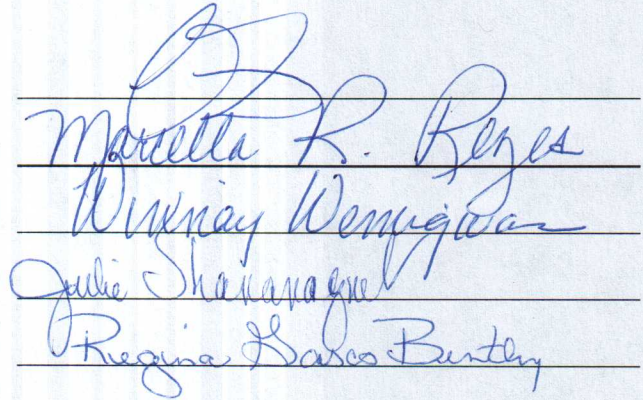 Marcella R. Reyes
Winnay Wemigwase
Julie Shananaquet
Regina Gasco Bentley